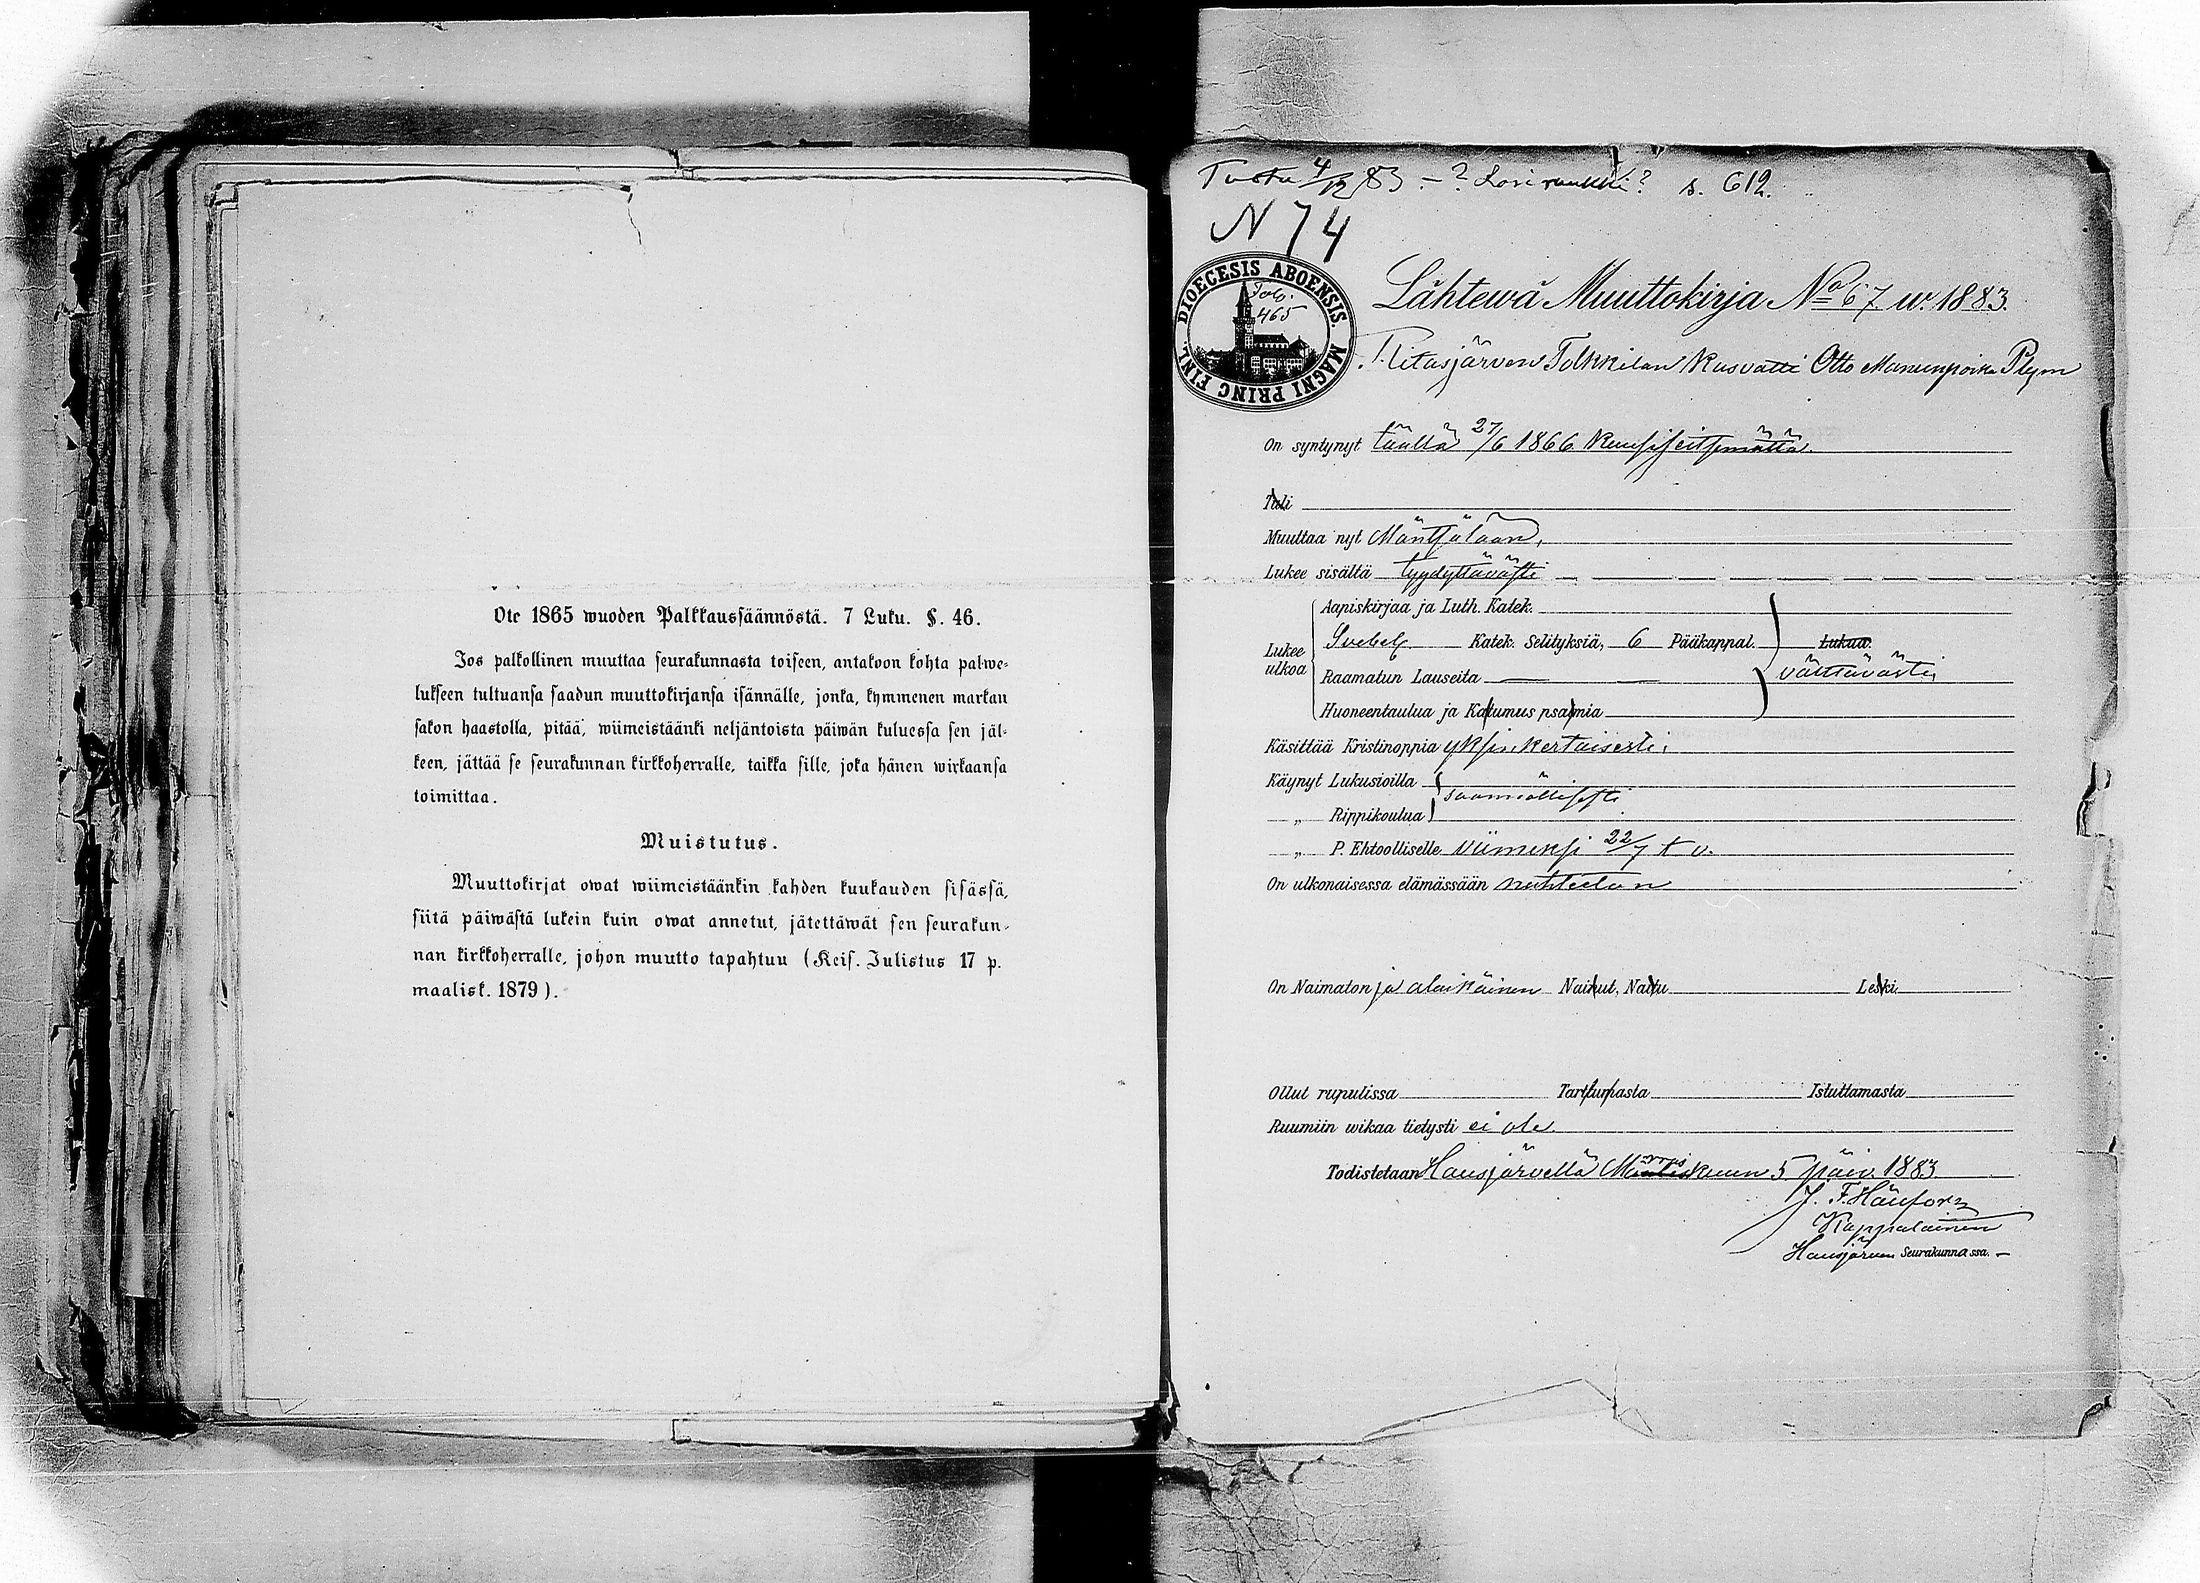 Ote 1865 wuoden Palkkaussäännöstä. 7 Luku. §. 46.
Jos palkollinen muuttaa seurakunnasta toiseen, antakoon kohta palwe-
lukseen tultuansa saadun muuttokirjansa isännälle, jonka, kymmenen markan
sakon haastolla, pitää, wiimeistäänki neljäntoista päiwän kuluessa sen jäl-
keen, jättää se seurakunnan kirkkoherralle, taikka sille, joka hänen wirkaansa
toimittaa.
Muistutus.
Muuttokirjat owat wiimeistäänkin kahden kuukauden sisässä,
siitä päiwästä lukein kuin owat annetut, jätettäwät sen seurakun-
nan kirkkoherralle, johon muutto tapahtuu (Keis. Julistus 17 p.
maalisk. 1879).
4/12 83 – ? ? s. 612.
N 74
DIOECESIS ABOENSIS. MAGNI PRINC FINL.
465
Lähtewä Muuttokirja No 67 w. 1883.
Tolkkilan Kasvatti Otto Manuunpoika Plym
On syntynyt täällä 27/6 1866 Kuusiseitsemättä.
Tuli
Muuttaa nyt Mäntsälään,
Lukee sisältä tyydyttävästi
Aapiskirjaa ja Luth. Katek.
Lukee ulkoa Svebel. Katek. Selityksiä, 6 Pääkappal. Lukua.
Raamatun Lauseita välttävästi
Huoneentaulua ja Katumus psalmia
Käsittää Kristinoppia yksinkertaisesti.
Käynyt Lukusioilla säännöllisesti
„ Rippikoulua
„ P. Ehtoolliselle Viimeksi 22/7 t. v.
On ulkonaisessa elämässään nuhteeton
On Naimaton ja alaikäinen Nainut, Naitu Leski
Ollut rupulissa Tarttumasta Istuttamasta
Ruumiin wikaa tietysti ei ole
Todistetaan Hausjärvellä Marraskuun 5 päiv. 1883
J. F. Hänfors
Kappalainen
Hausjärven Seurakunnassa.